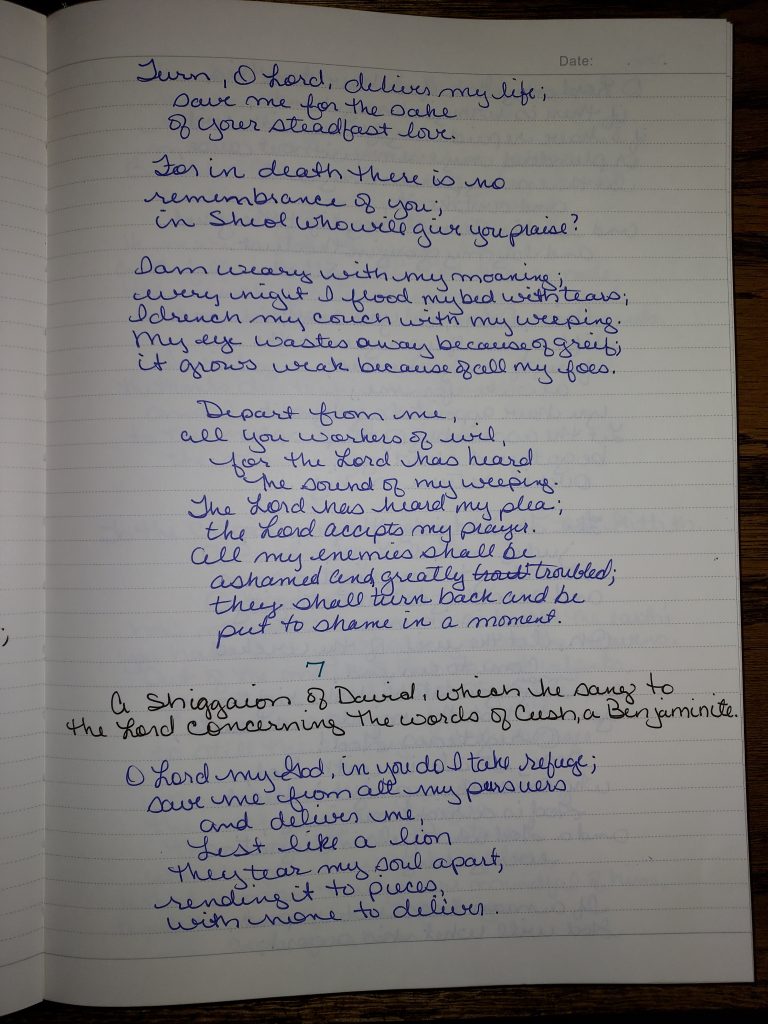 Date:
Turn, O Lord, deliver my life;
save me for the sake
of your steadfast love.
For in death there is no
remembrance of you;
in Sheol who will give you praise?
I am weary with my moaning;
every night I flood my bed with tears;
I drench my couch with my weeping.
My eye wastes away because of greif;
it grows weak because of all my foes.
Depart from me,
all you workers of evil,
for the Lord has heard
the sound of my weeping.
The Lord has heard my plea;
the Lord accepts my prayer.
All my enemies shall be
ashamed and greatly trout troubled;
they shall turn back and be
put to shame in a moment.
7
A Shiggaion of David, which he sang to
the Lord concerning the words of Cush, a Benjaminite.
O Lord my God, in you do I take refuge;
save me from all my persuers
and deliver me,
Lest like a lion
they tear my soul apart,
rending it to pieces,
with none to deliver.
;